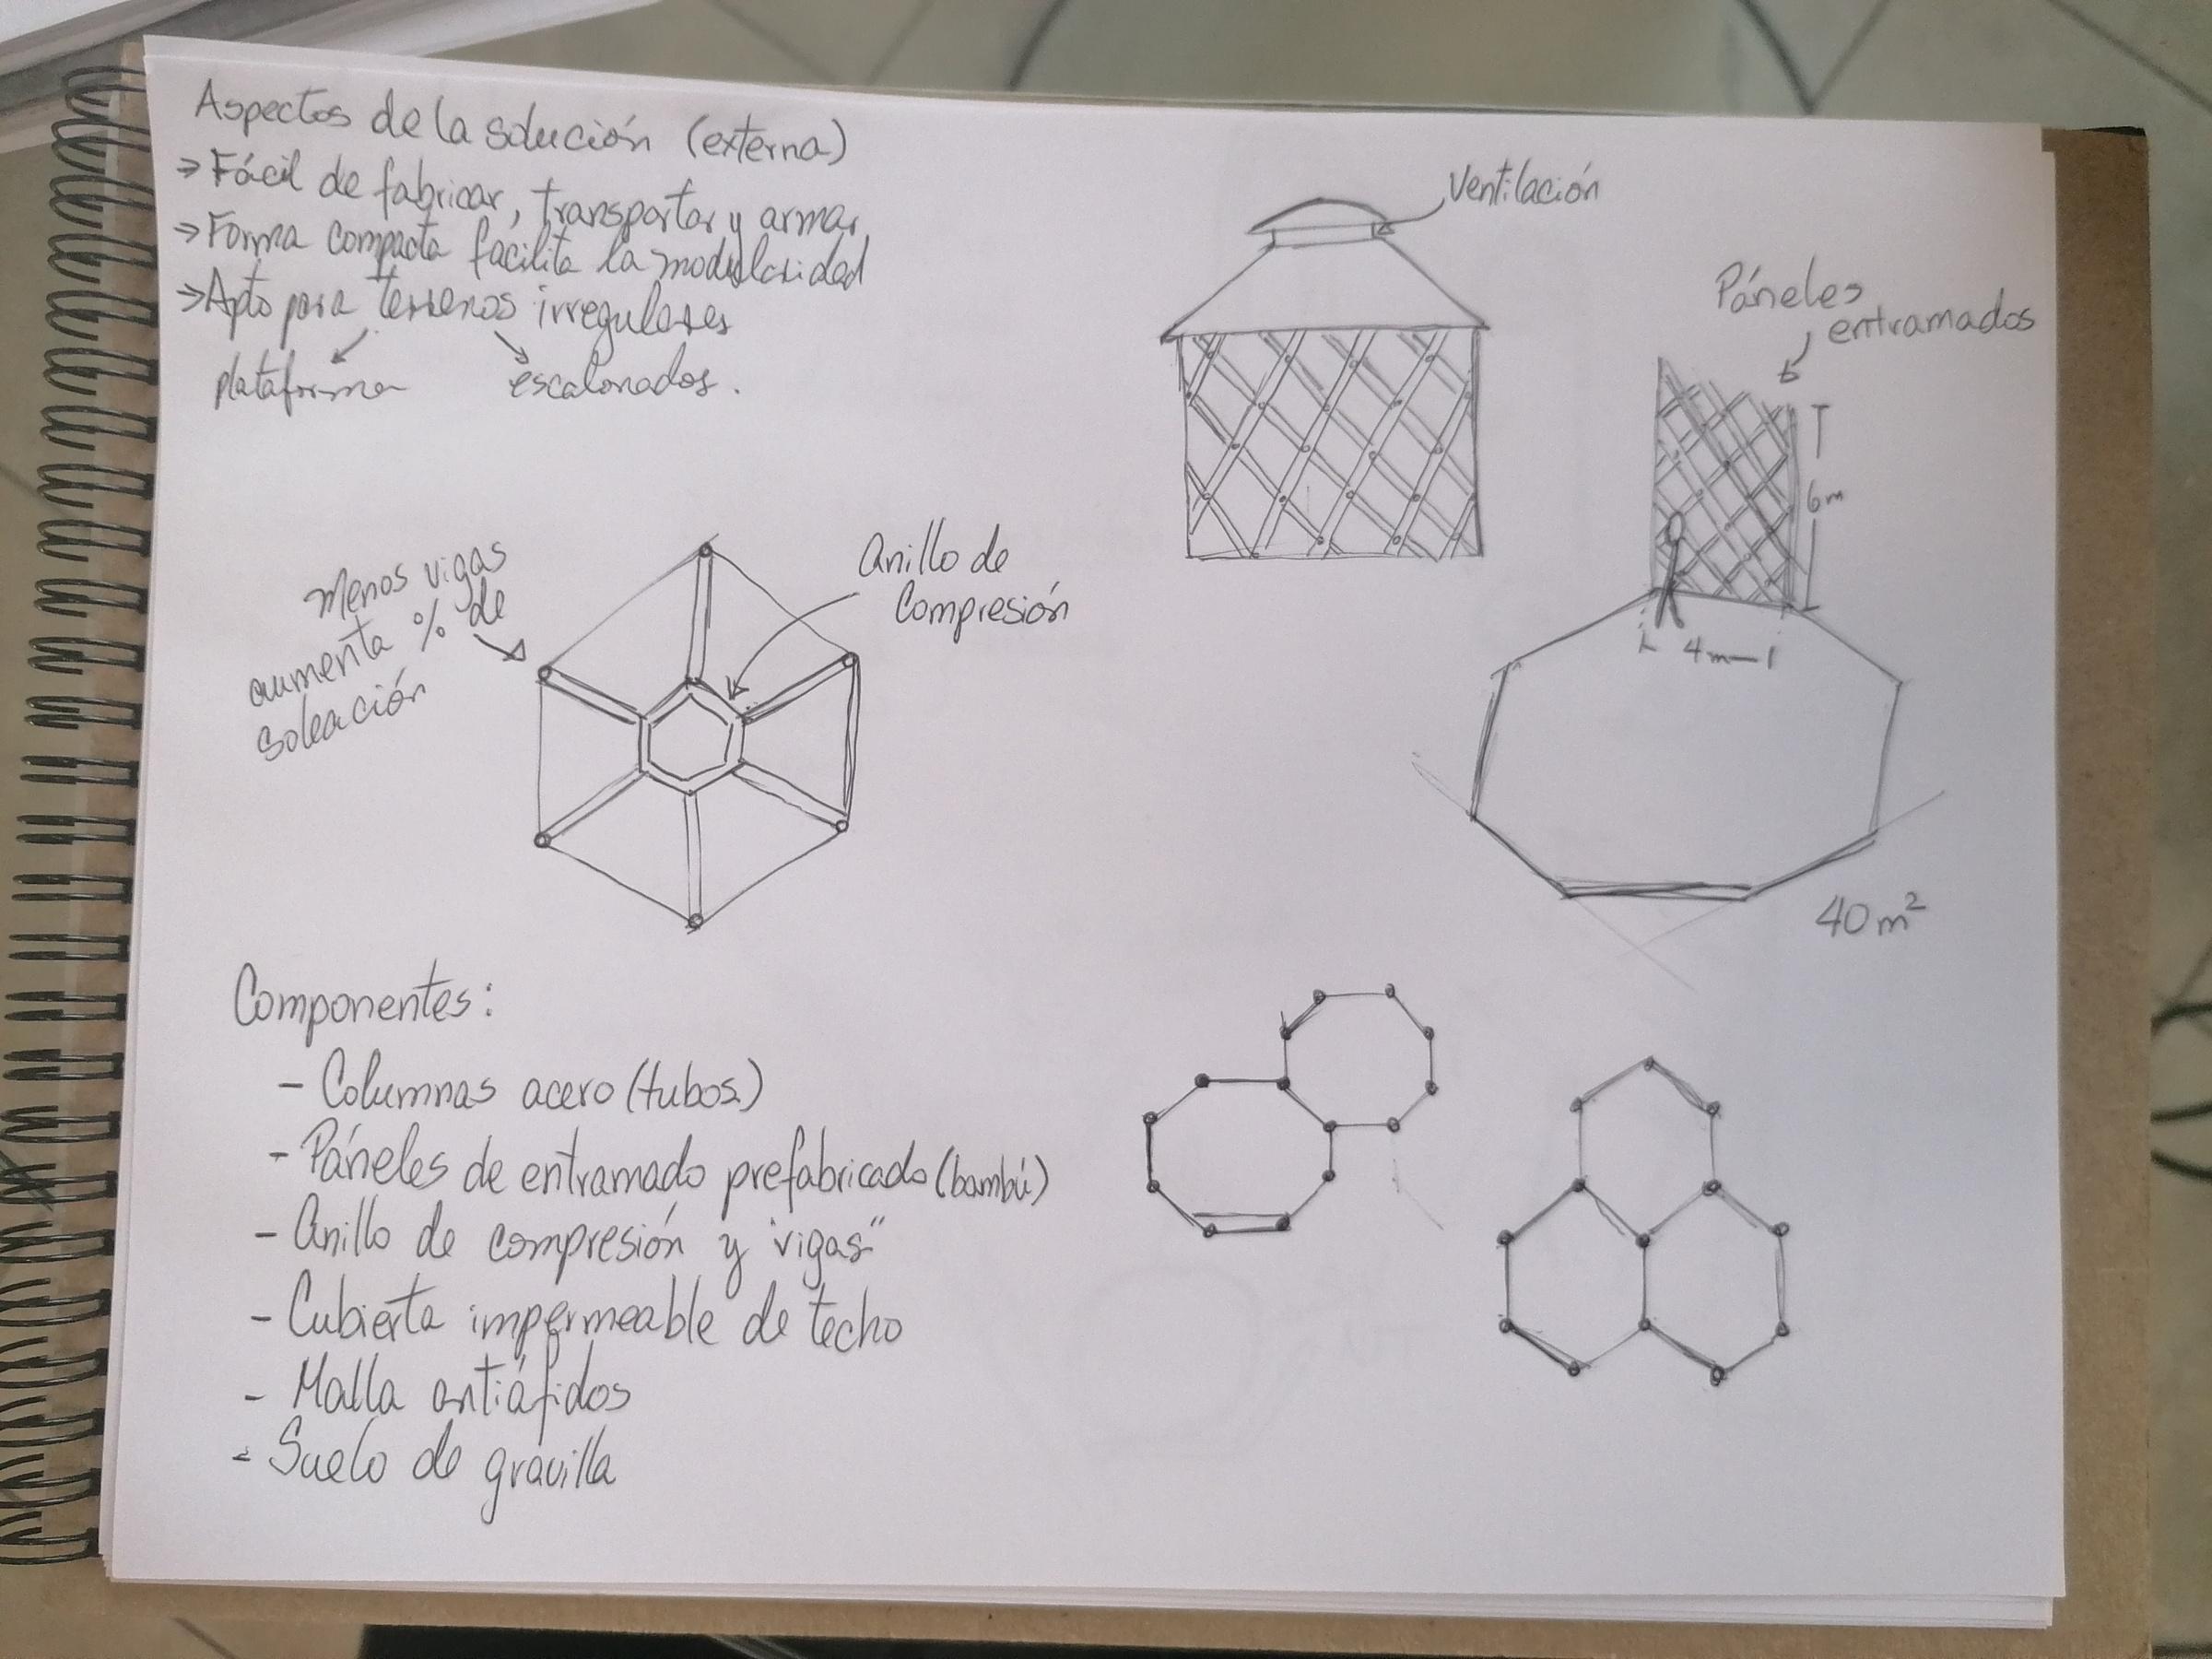 Aspectos de la solución (externa)
⇒ Fácil de fabricar, transportar y armar
⇒ Forma compacta facilita la modularidad
⇒ Apto para terrenos irregulares
plataforma escalonados.
Ventilación
Páneles
entramados
6m
4m
40 m²
Menos vigas
aumenta % de
soleación
Anillo de
Compresión
Componentes:
- Columnas acero (tubos)
- Páneles de entramado prefabricado (bambú)
- Anillo de compresión y "vigas"
- Cubierta impermeable de techo
- Malla antiáfidos
- Suelo de gravilla